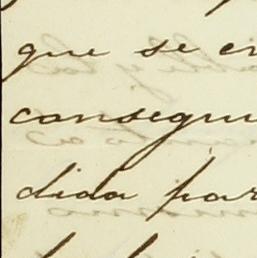 que se en
consegui
dida par